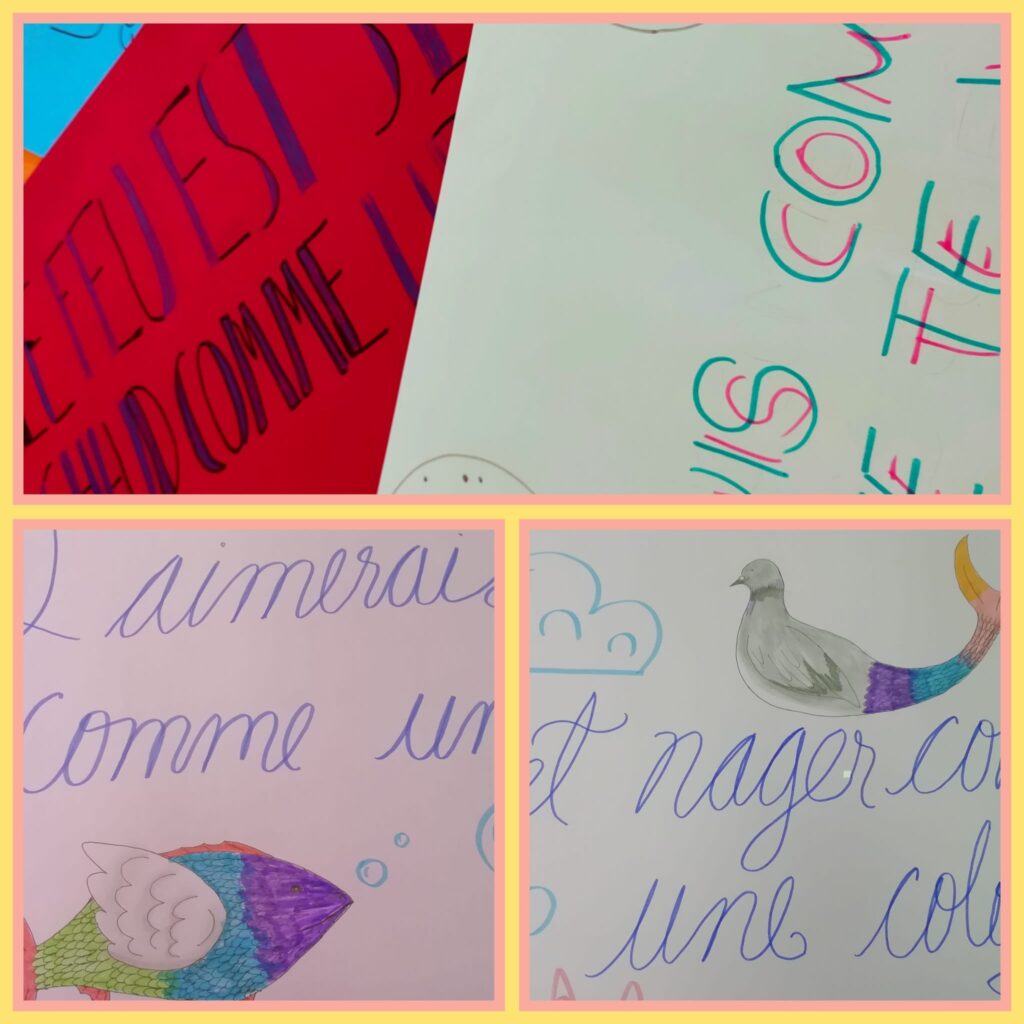 E FEU EST
CHAUD COMME
UIS COM
E TE
aimerais
comme un
et nager co
une colo